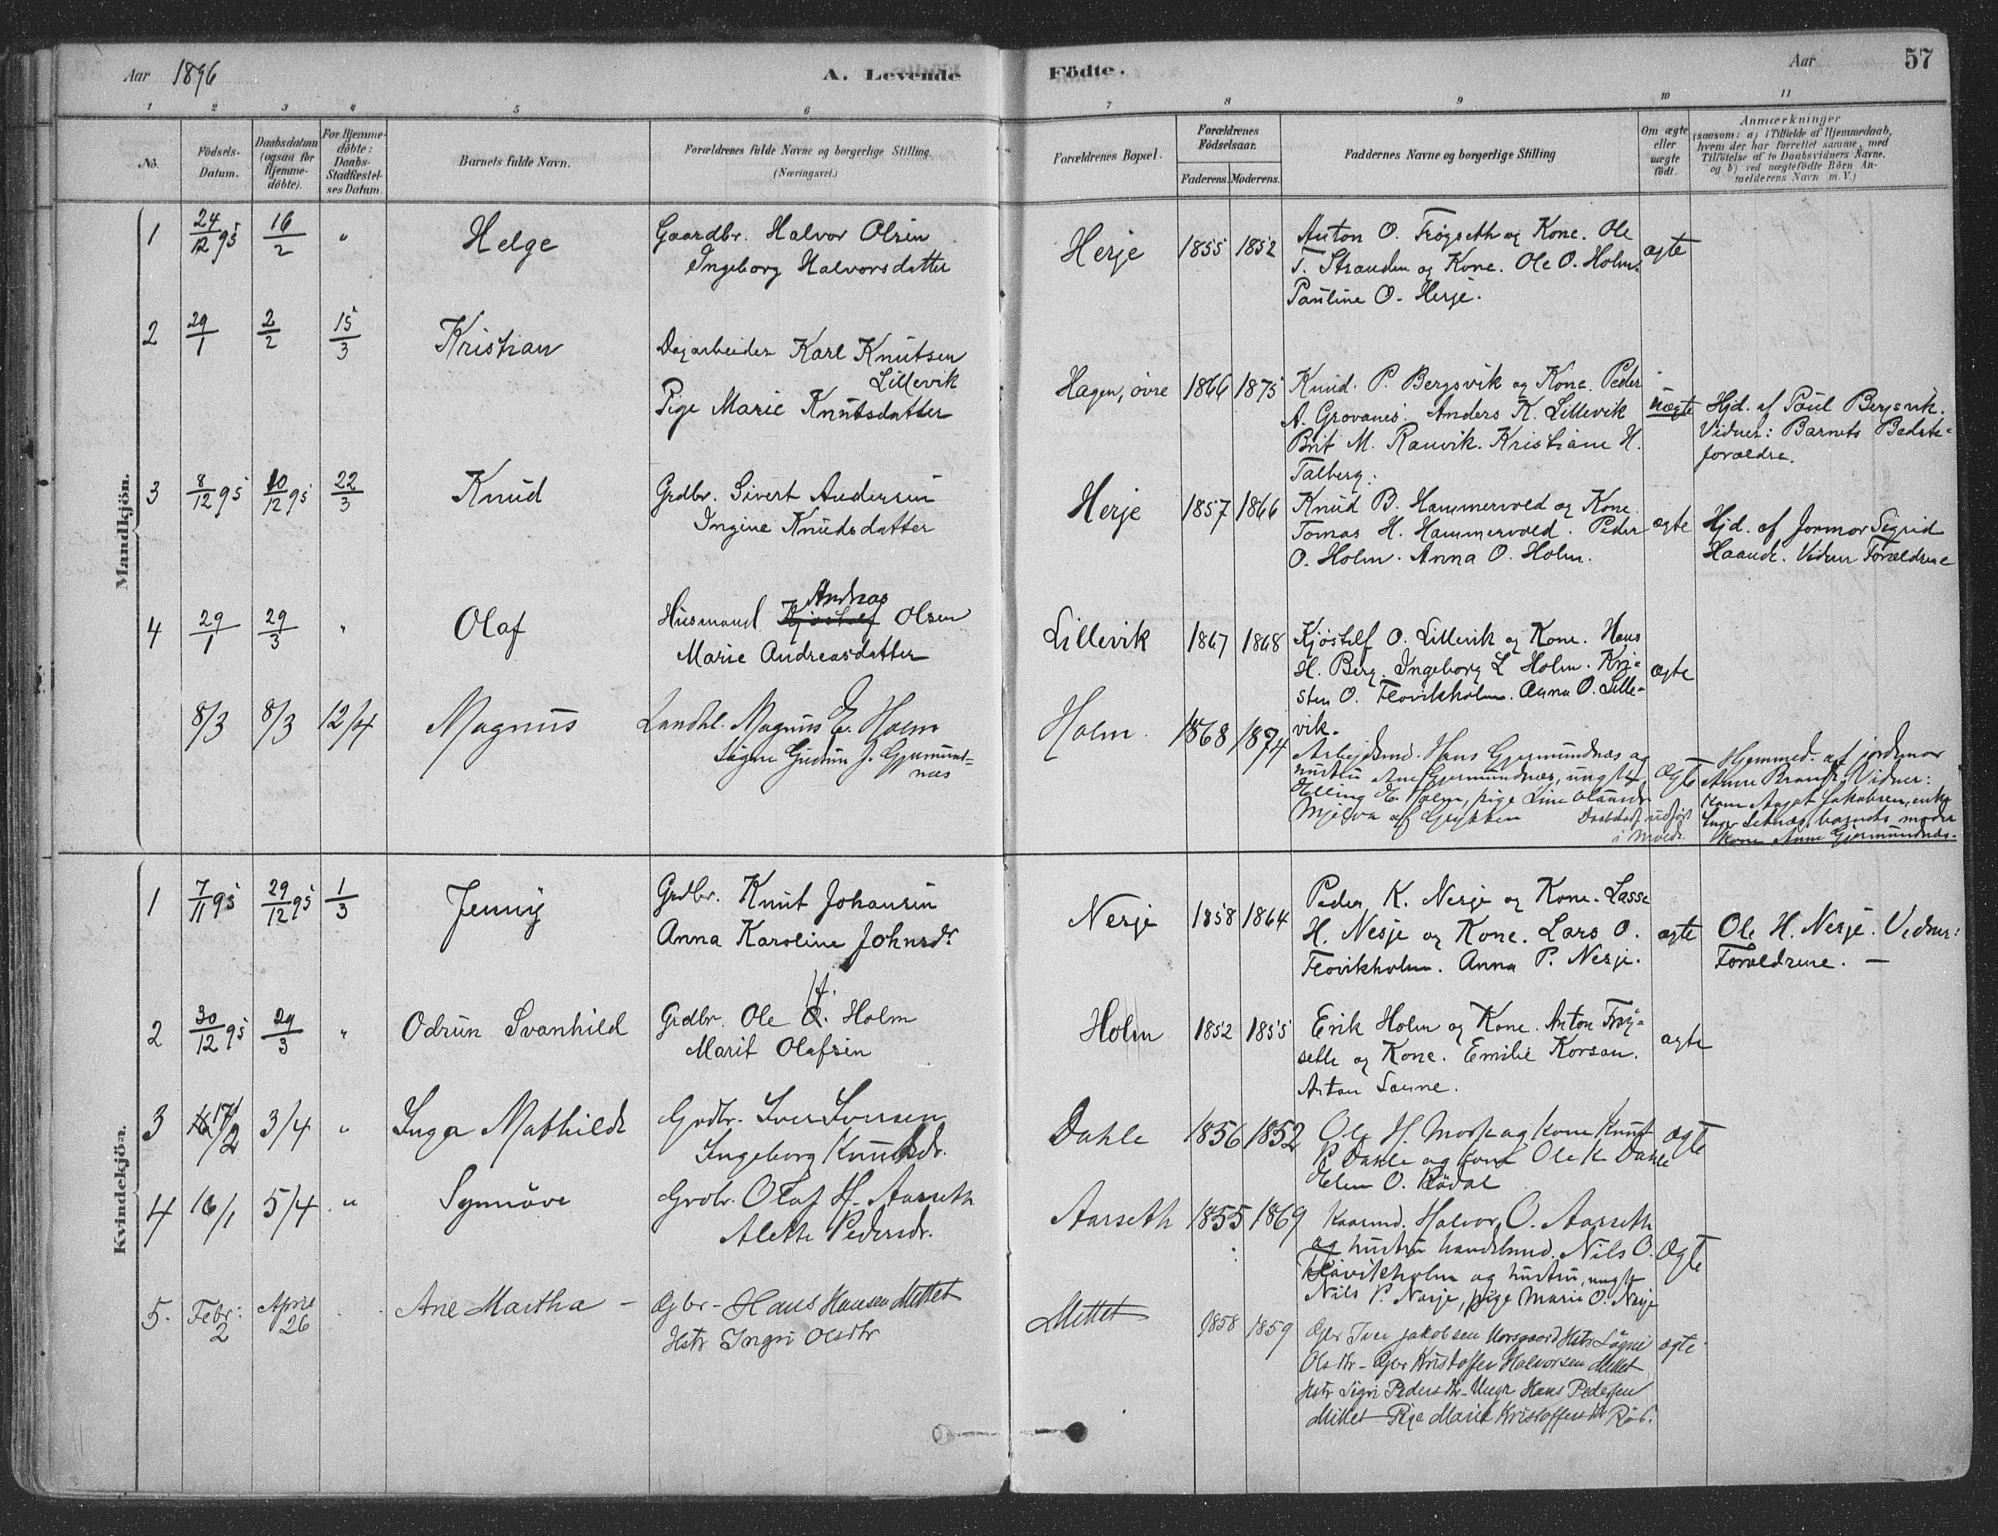 Aar 1896
A. Levende Födte.
Aar 57
1 2 3 4 5 6 7 8 9 10 11
No.
Födsels-Datum.
Daabsdatum (ogsaa for Hjemmedöbte).
For Hjemmedöbte: Daabs-Stadfæstelses Datum.
Barnets fulde Navn.
Forældrenes fulde Navne og borgerlige Stilling (Næringsvei.)
Forældrenes Bopæl.
Forældrenes Födselsaar.
Faderens. Moderens.
Faddernes Navne og borgerlige Stilling
Om ægte eller uægte födt.
Anmærkninger
(saasom: a) i Tilfælde af Hjemmedaab, hvem der har forrettet samme, med Tilföielse af to Daabsvidners Navne, og b) ved uægtefödte Börn Anmelderens Navn m. V.)
Mandkjön.
1 24/12 95 16/2 " Helge
Gaardbr. Halvor Olsen
Ingeborg Halvorsdatter
Herje 1855 1852
Anton O. Frøyseth og Kone. Ole
T. Stranden og Kone. Ole O. Holm.
Pauline O. Herje.
ægte
2 29/1 2/2 15/3 Kristian
Dagarbeider Karl Knutsen
Lillevik
Pige Marie Knutsdatter
Hagen, øvre 1866 1875
Knud P. Bergsvik og Kone. Peder
A. Grovanes. Anders K. Lillevik
Brit M. Ranvik. Kristiane H.
Talberg.
uægte
Hjd. af Paul Bergsvik.
Vidner: Barnets Bedste-
forældre.
3 8/12 95 10/12 95 22/3 Knud
Grdbr. Sivert Andersen
Ingine Knudsdatter
Herje 1857 1866
Knud B. Hammervold og Kone.
Tomas H. Hammervold. Peder
O. Holm. Anna O. Holm.
ægte
Hjd. af Jormor Sigrid
Haande. Vidner Forældrene
4 29/1 29/3 " Olaf
Andreas
Husmand Kjøstolf Olsen
Marie Andreasdatter
Lillevik 1867 1868
Kjøstolf O. Lillevik og Kone. Hans
H. Berg. Ingeborg L Holm. Kri-
sten O. Flovikholm. Anna O. Lille-
vik.
ægte
8/3 8/3 12/4 Magnus
Landhl. Magnus E. Holm
Signe Gudrun J. Gjermund-
næs
Holm. 1868 1874
Arbeidsmd. Hans Gjermundnæs og
hustru Ane Gjermundnæs, ungk.
Elling E. Holm, pige Line
Mjelva af Grytten Daabstadf. udført
i Molde
ægte
Hjemmed. af jordemor
Anne Brandt. Vidner:
Kone Aagot Jakobsen, enke
Inger Setnæs, barnets moder
Kone Anne Gjermundnæs.
Kvindekjön.
1 7/11 95 29/12 95 1/3 Jenny
Grdbr. Knut Johansen
Anna Karoline Johnsdr.
Nesje 1858 1864
Peder K. Nesje og Kone. Lasse
H. Nesje og Kone. Lars O.
Flovikholm. Anna P. Nesje.
ægte
Ole H. Nesje. Vidner:
Forældrene. —
2 30/12 95 29/3 " Odrun Svanhild
Grdbr. Ole O. Holm
Marit Olafsen
Holm 1852 1855
Erik Holm og Kone. Anton Frøy-
seth og Kone. Emilie Korsan.
Anton Sanne.
ægte
3 17/2 3/4 " Inga Mathilde
Grdbr. Iver Iversen
Ingeborg Knutsdr.
Dahle 1856 1852
Ole H. Mork og kone Knut
P. Dahle og kone Ole K Dahle
Elen O. Rödal
ægte
4 16/1 5/4 " Synnöve
Grdbr. Olaf H. Aarseth
Alette Pedersdr.
Aarseth 1855 1869
Kaarmd. Halvor O. Aarseth
og hustru handelsmd. Nils O.
Flovikholm og hustru, ungk.
Nils P. Nesje, pige Marie O. Nesje
ægte
5. Febr: 2 April 26 Ane Martha —
Gbr — Hans Hansen Mittet
Hstr Ingri Olsdtr
Mittet 1858 1859
Gbr Iver Jakobsen Horsgaard Hstr Signe
Olsdtr — Gbr Kristoffer Halvorsen Mittet
Hstr Sigri Pedersdtr — Ungk Hans Pedersen
Mittet — Pige Marit Kristoffersdtr Röd.
ægte